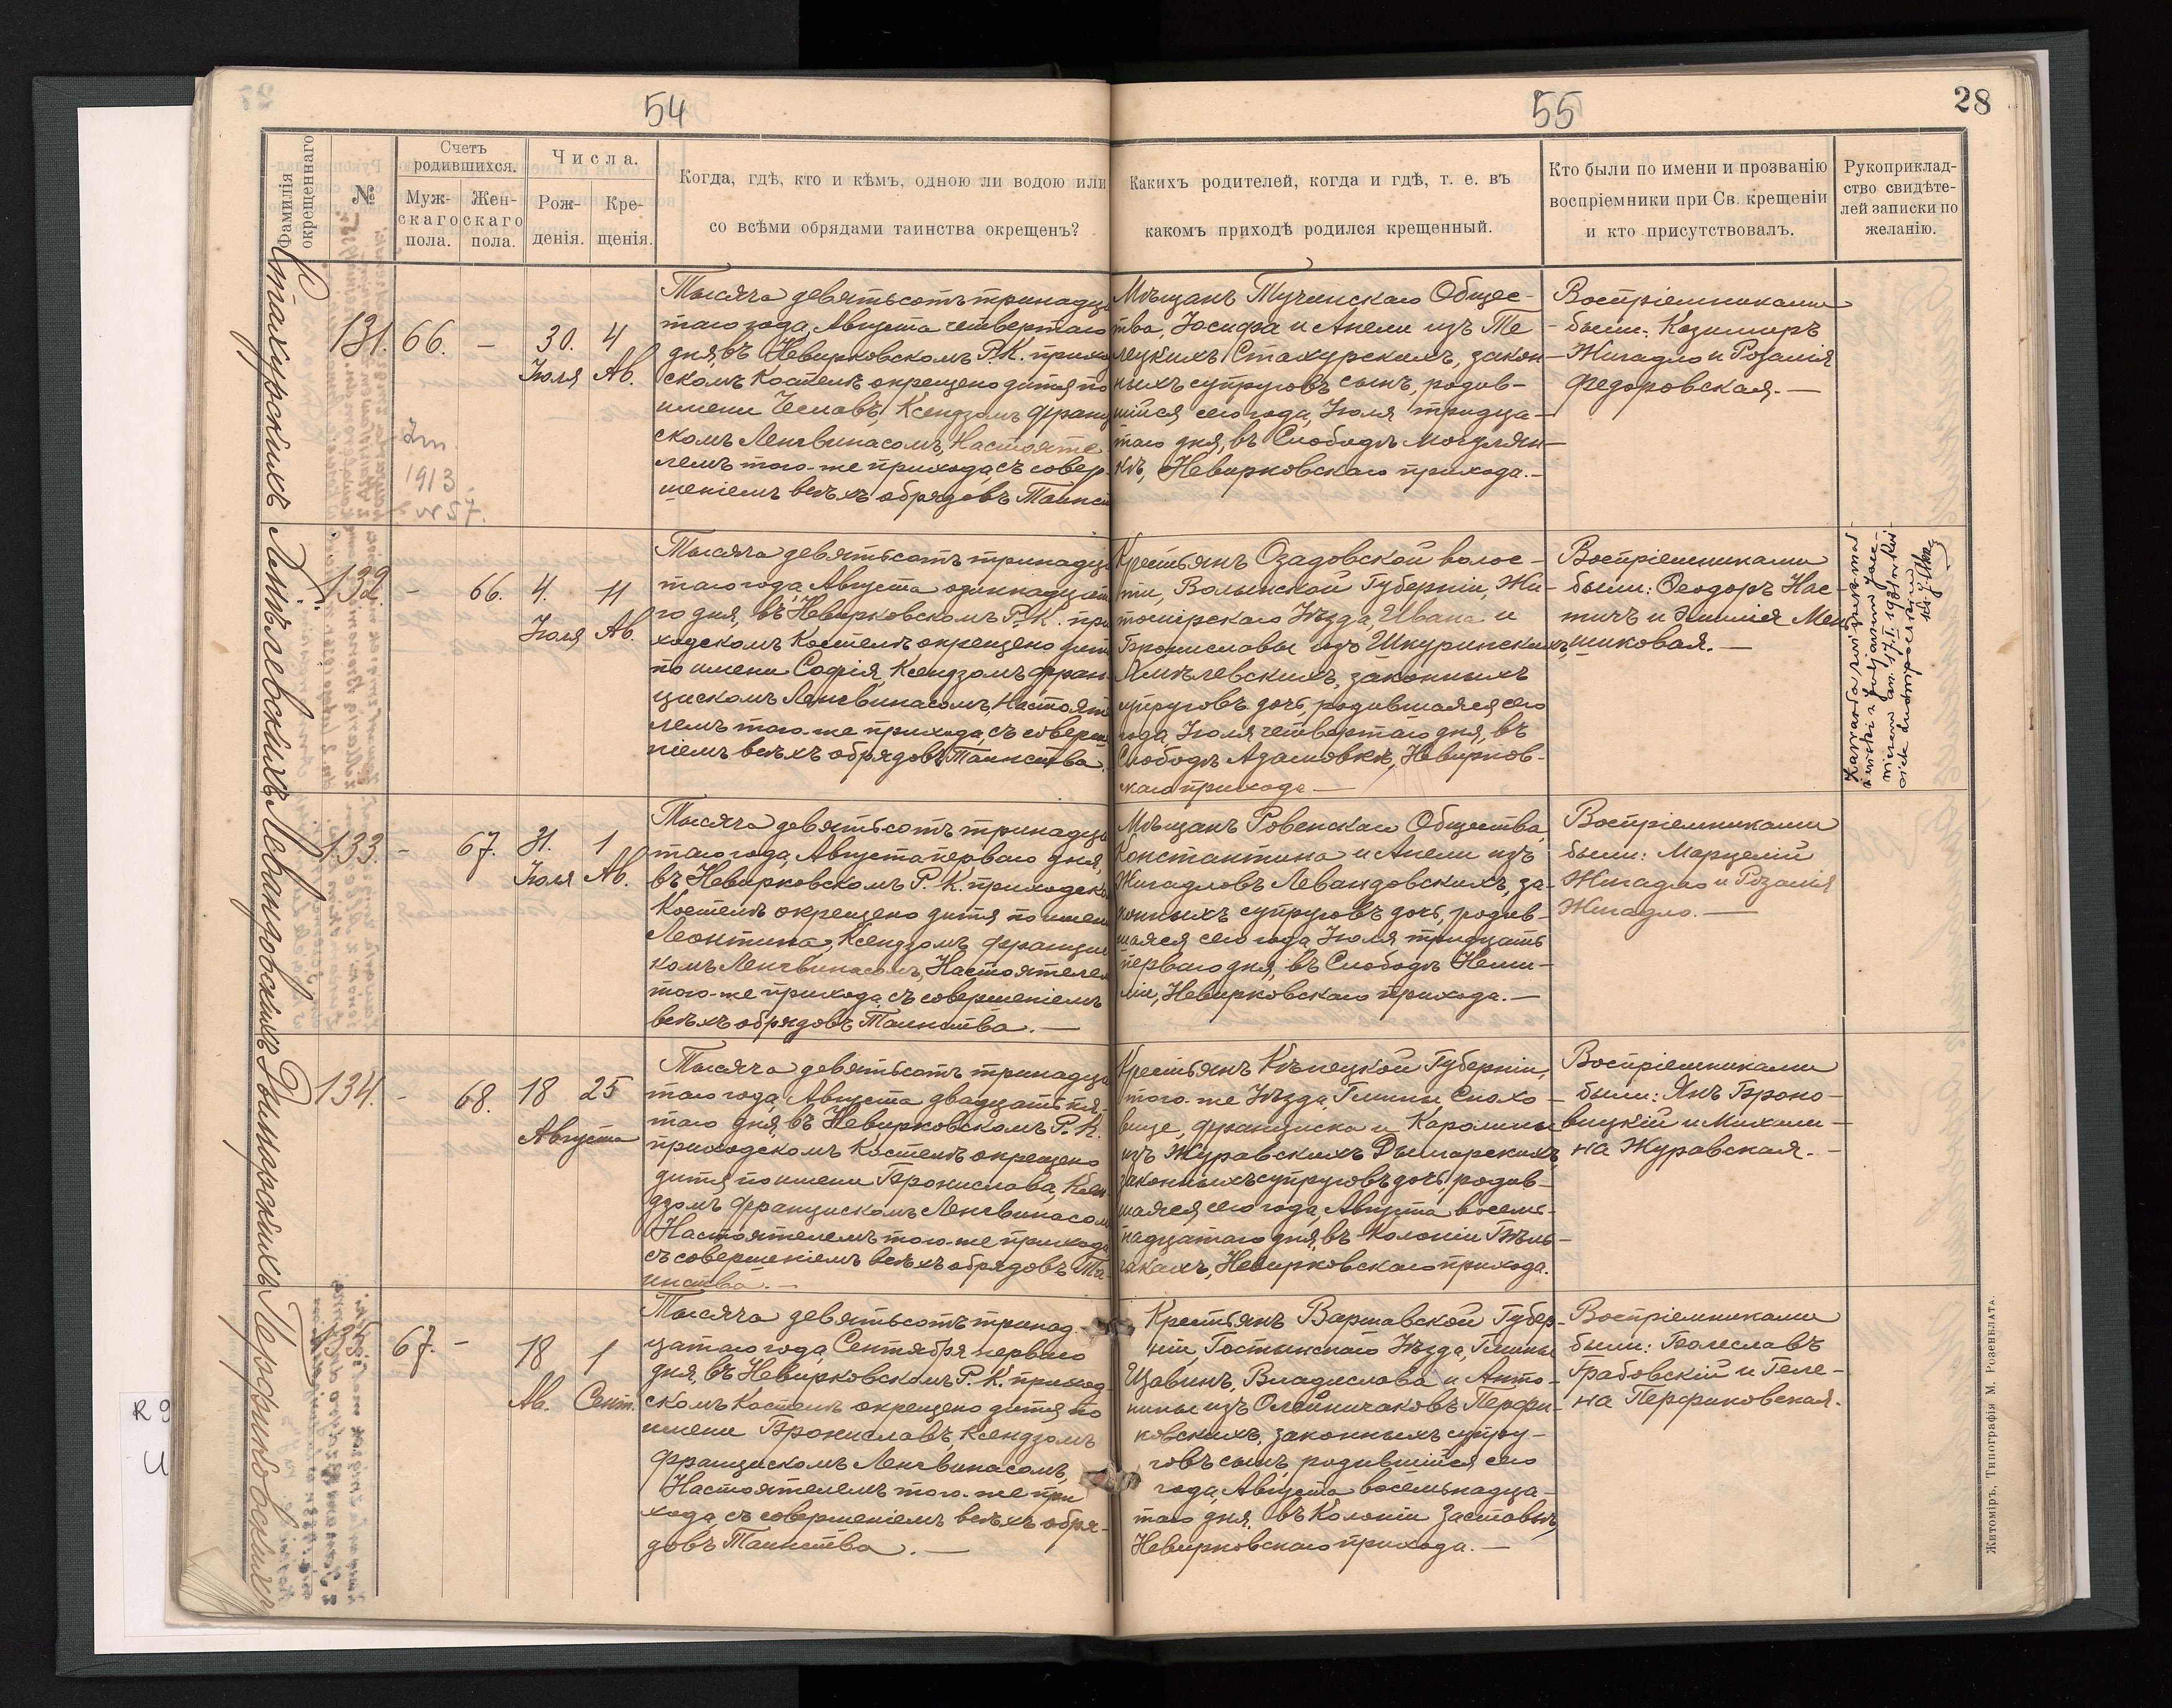 54
55
28
Фамилія
окрещеннаго
№
Счетъ
родившихся.
Муж-
скаго
пола.
Жен-
скаго
пола.
Числа.
Рож-
денія.
Кре-
щенія.
Когда, гдѣ, кто и кѣмъ, одною ли водою или
со всѣми обрядами таинства окрещенъ?
Какихъ родителей, когда и гдѣ, т. е. въ
какомъ приходѣ родился крещенный.
Кто были по имени и прозванію
воспріемники при Св. крещеніи
и кто присутствовалъ.
Рукоприклад-
ство свидѣте-
лей записки по
желанію.
Стахурскихъ
131.
66.
-
30.
Іюля
4
Ав.
1913
№ 57.
Тысяча девятьсотъ тринадца
таго года, Августа четвертаго
дня, въ Невирковскомъ Р.К. прихо
скомъ Костелѣ окрещено дитя по
имени Чеславъ, Ксендзомъ Франц
скомъ Ленгвинасомъ, Настояте
лемъ того-же прихода, съ совер
шеніемъ всѣхъ обрядовъ Таинст
Мѣщанъ Тучинскаго Общес-
тва, Іосифа и Анели изъ Те
лецкихъ Стахурскихъ, закон-
ныхъ супруговъ сынъ, родив-
шійся сего года, Іюля тридца-
таго дня, въ Слободѣ Могулян-
кѣ, Невирковскаго прихода.-
Воспріемниками
были: Казимиръ
Жигадло и Розалія
Федоровская.-
132.
-
66.
4.
Іюля
11
Ав.
Тысяча девятьсотъ тринадца
таго года, Августа одиннадцата
го дня, въ Невирковскомъ Р.К. при
ходскомъ Костелѣ окрещено дитя
по имени Софія, Ксендзомъ Фран-
цискомъ Ленгвинасомъ, Настояте
лемъ того-же прихода, съ соверше
ніемъ всѣхъ обрядовъ Таинства.
Крестьянъ Озадовской волос-
ти, Волынской Губерніи, Жи-
томірскаго Уѣзда, Ивана и
Брониславы изъ Шкуринскихъ
Хмѣлевскихъ, законныхъ
супруговъ дочь, родившаяся сего
года, Іюля четвертаго дня, въ
Слободѣ Адамовкѣ, Невирков-
скаго прихода-
Воспріемниками
были: Ѳеодоръ Нас-
тичъ и Эмилія Мен
шиковая.-
Левандовскихъ
133.
-
67.
31.
Іюля
1
Ав.
Тысяча девятьсотъ тринадца
таго года, Августа перваго дня,
въ Невирковскомъ Р. К. приходско
Костелѣ окрещено дитя по имени
Леонтина, Ксендзомъ Францис
комъ Ленгвинасомъ, Настоятелем
того-же прихода, съ совершеніемъ
всѣхъ обрядовъ Таинства.-
Мѣщанъ Ровенскаго Общества,
Константина и Анели изъ
Жигадловъ Левандовскихъ, за-
конныхъ супруговъ дочь, родив-
шаяся сего года, Іюля тридцать
перваго дня, въ Слободѣ Неми-
ліи, Невирковскаго прихода.-
Воспріемниками
были: Марцелій
Жигадло и Розалія
Жигадло.-
134.
-
68.
18
25
Августа
Тысяча девятьсотъ тринадца
таго года, Августа двадцать пя-
таго дня, въ Невирковскомъ Р. К.
приходскомъ Костелѣ окрещено
дитя по имени Бронислава, Ксен-
дзомъ Францискомъ Ленгвинасом
Настоятелемъ того-же прихода
съ совершеніемъ всѣхъ обрядовъ Та-
инства.-
Крестьянъ Кѣлецкой Губерніи,
того-же Уѣзда, Гмины Снохо-
вице, Франциска и Каролины
изъ Журавскихъ Дымарскихъ,
законныхъ супруговъ дочь, родив-
шаяся сего года, Августа восем-
надцатаго дня, въ Колоніи Бѣль-
чакахъ, Невирковскаго прихода.
Воспріемниками
были: Янъ Броно-
вицкій и Михали-
на Журавская.-
Перфиковскихъ
135.
67.
-
18
Ав.
1
Сент.
Тысяча девятьсотъ тринад
цатаго года, Сентября перваго
дня, въ Невирковскомъ Р. К. приход-
скомъ Костелѣ окрещено дитя по
имени Брониславъ, Ксендзомъ
Францискомъ Ленгвинасомъ,
Настоятелемъ того-же при
хода, съ совершеніемъ всѣхъ обря-
довъ Таинства.-
Крестьянъ Варшавской Губер-
ніи, Гостынскаго Уѣзда, Гмины
Щавинъ, Владислава и Анто-
нины изъ Олейничаковъ Перфи-
ковскихъ, законныхъ супру-
говъ сынъ, родившійся сего
года, Августа восемнадца-
таго дня, въ Колоніи Заставье,
Невирковскаго прихода.-
Воспріемниками
были: Болеславъ
Грабовскій и Геле-
на Перфиковская.
Житоміръ, Типографія М. Розенблата.
R 9